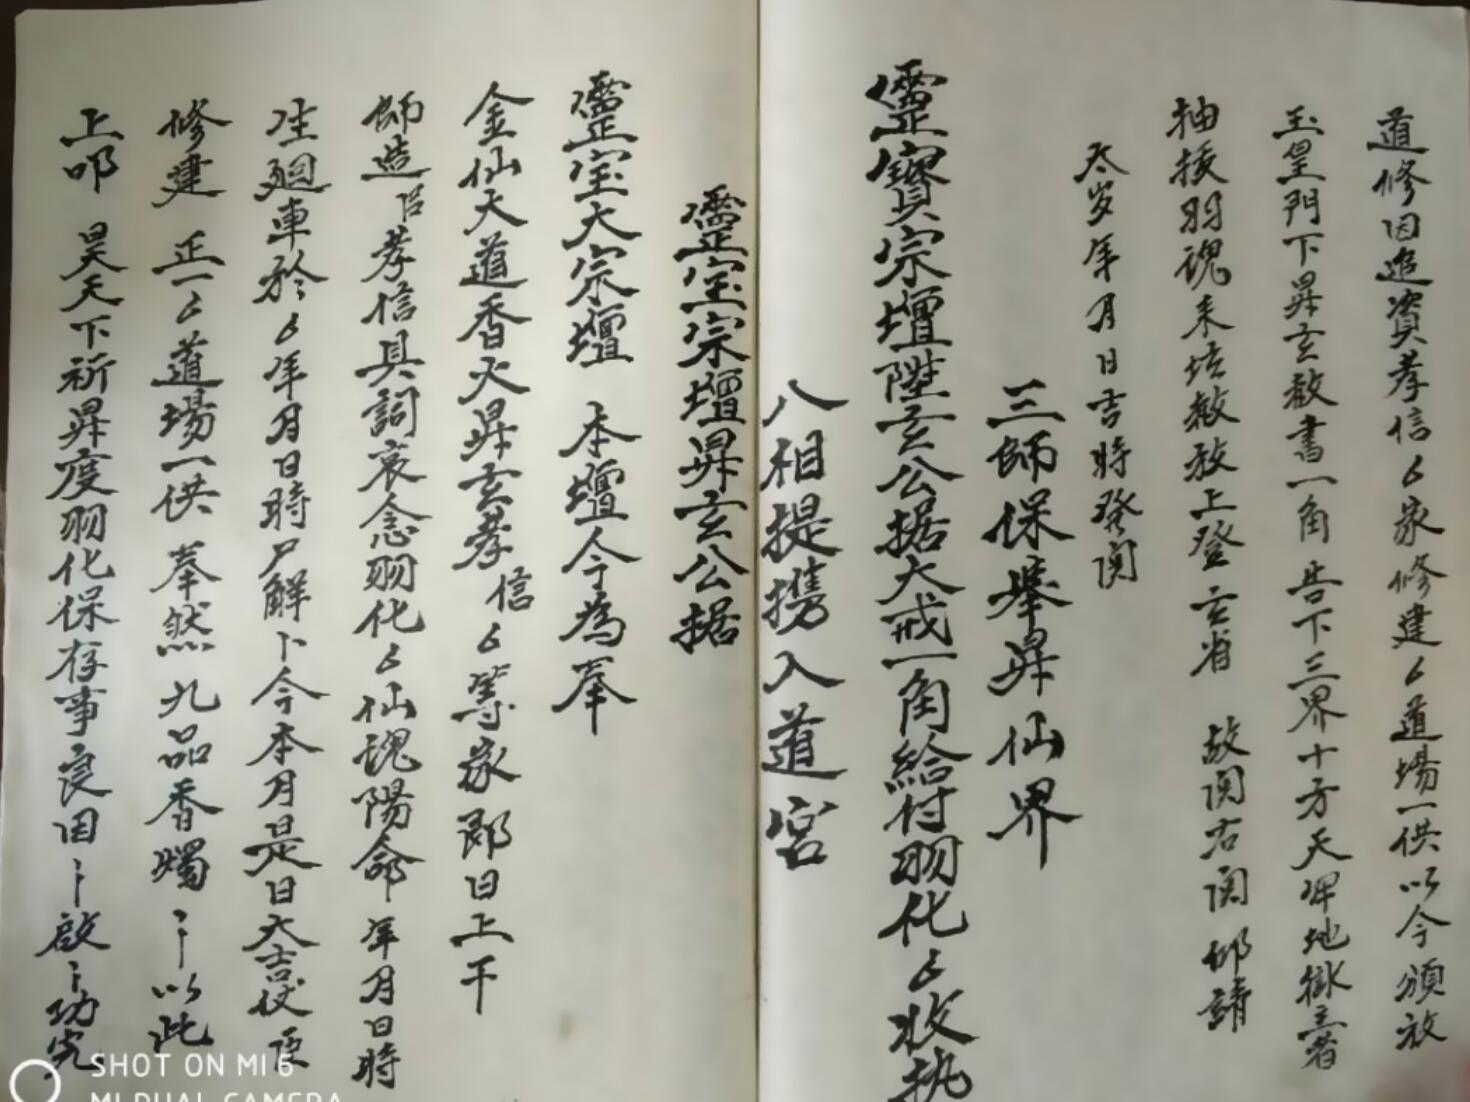 道修因追資孝信厶家修建厶道場一供以今頒放
玉皇門下昇玄赦書一角 告下三界十方天曹地獄主者
抽拔羽魂來坛赦放上登玄省 故関右関却請
太岁年月日吉時發関
三師保舉昇仙界
靈寶宗壇陞玄公据大戒一角給付羽化厶收执
八相提携入道宮
靈宝宗壇昇玄公据
靈宝大宗壇 本壇今為奉
金仙天道香火昇玄孝信厶等家即日上干
師造 臣孝信具詞哀念羽化厶仙魂陽命年月日時
生廻車於厶年月日時尸解卜今本月是日大吉仗
修建 正一厶道場一供 奉然九品香燭 以此
上叩 昊天下祈昇度羽化保存事良因 啟 功完
SHOT ON MI 6
MI DUAL CAMERA